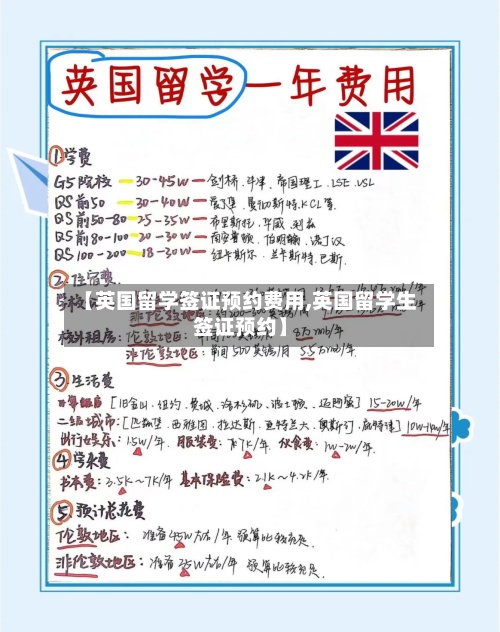 英国留学一年费用
①学费
G5院校 — 30-45W — 剑桥.牛津.帝国理工.LSE.USL
QS前50 — 30-40W — 爱丁堡.曼彻斯特.KCL等.
QS前50-80 — 25-35W — 布里斯托.华威.利兹
QS前80-100 — 20-30W — 南安普顿.伯明翰.诺丁汉
QS100-200 — 18-30W — 纽卡斯尔.兰卡斯特.巴斯.
2.住宿费
【英国留学签证预约费用,英国留学生
签证预约】
校外租房:伦敦地区: 8万rmb/年
非伦敦地区: 每周500英镑/月 5.5万rmb/年.
3.生活费
[旧金山.纽约.费城.洛杉矶.波士顿.迈阿密] 15-20w/年
二线城市:[匹兹堡.西雅图.拉达斯.亚特兰大.奥斯汀.底特律] 10w-14w/年
出行娱乐:1.5W/年. 服装费: 7K/年. 伙食费:1w-2w/年.
④学杂费
书本费:3.5k~7K/年 基本保险费:2.1k~4.2k/年.
⑤.预计总花费
伦敦地区: 准备45W左右/年 预算比较充足.
非伦敦地区: 准备35W左右/年 预算比较充足.